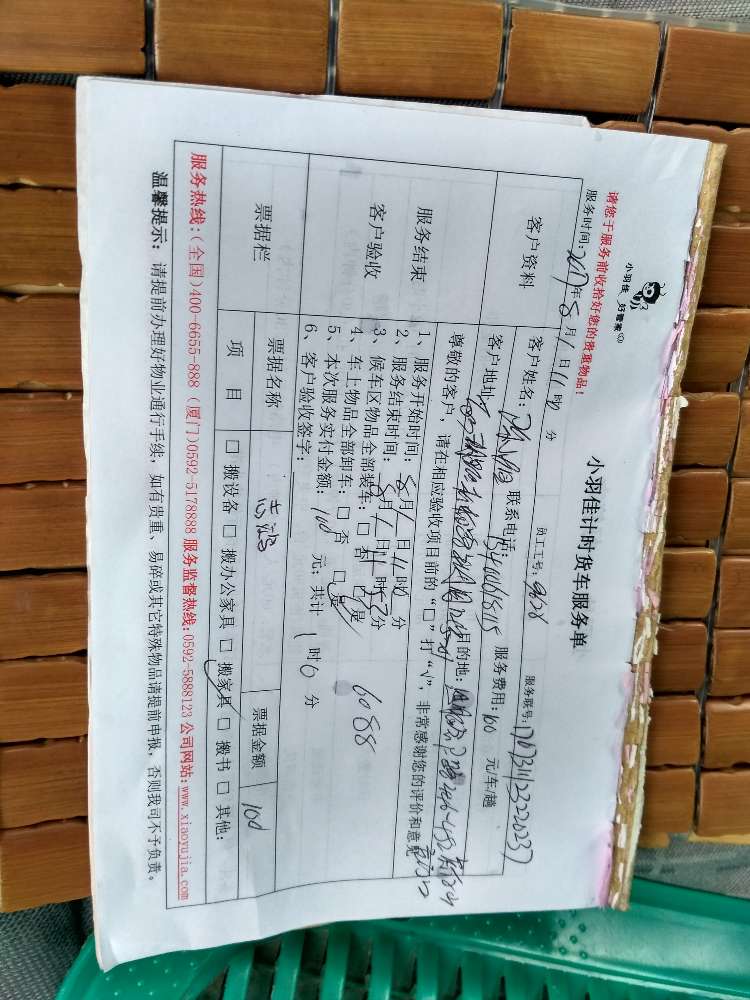 小羽佳 好管家
小羽佳计时货车服务单
请您于服务前收拾好您的贵重物品！
服务时间：2017年8月1日11时0分 员工工号：9628 服务联号：
客户资料
客户姓名： 联系电话： 服务费用：100 元/车/趟
客户地址： 目的地：
服务结束
客户验收
尊敬的客户，请在相应验收项目前的“□”打“√”，非常感谢您的评价和意见
1、服务开始时间：8月1日11时0分
2、服务结束时间：8月1日11时 分
3、候车区物品全部装车：□否 □是
4、车上物品全部卸车：□否 □是
5、本次服务实付金额：100 元；共计 1时0分
6、客户验收签字： 6088
票据栏 票据名称 票据金额 100
项 目 □搬设备 □搬办公家具 □搬家具 □搬书 □其他：
服务热线：（全国）400-6655-888（厦门）0592-5178888 服务监督热线：0592-5888123 公司网站：www.xiaoyujia.com
温馨提示：请提前办理好物业通行手续，如有贵重、易碎或其它特殊物品请提前申报，否则我司不予负责。